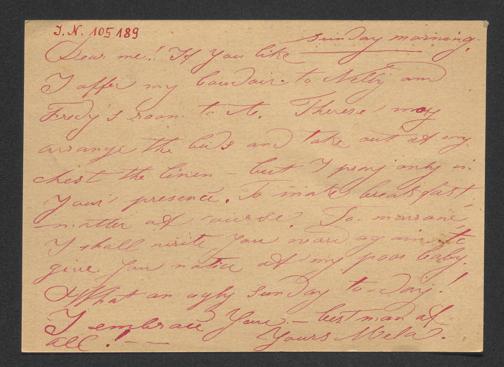 J. N. 105189
Sunday morning.
Dear me! If you like
I offer my boudoir to Nelly and
Fredy's room to A. Therese may
arrange the beds and take out of my
chest the linen – but I pray only in
Your presence. To make breakfast
matter of course! To-morrow
I shall write you more again to
give you notice of my poor baby.
What an ugly Sunday to-day!
I embrace You – best man of
all! – Yours Mela.